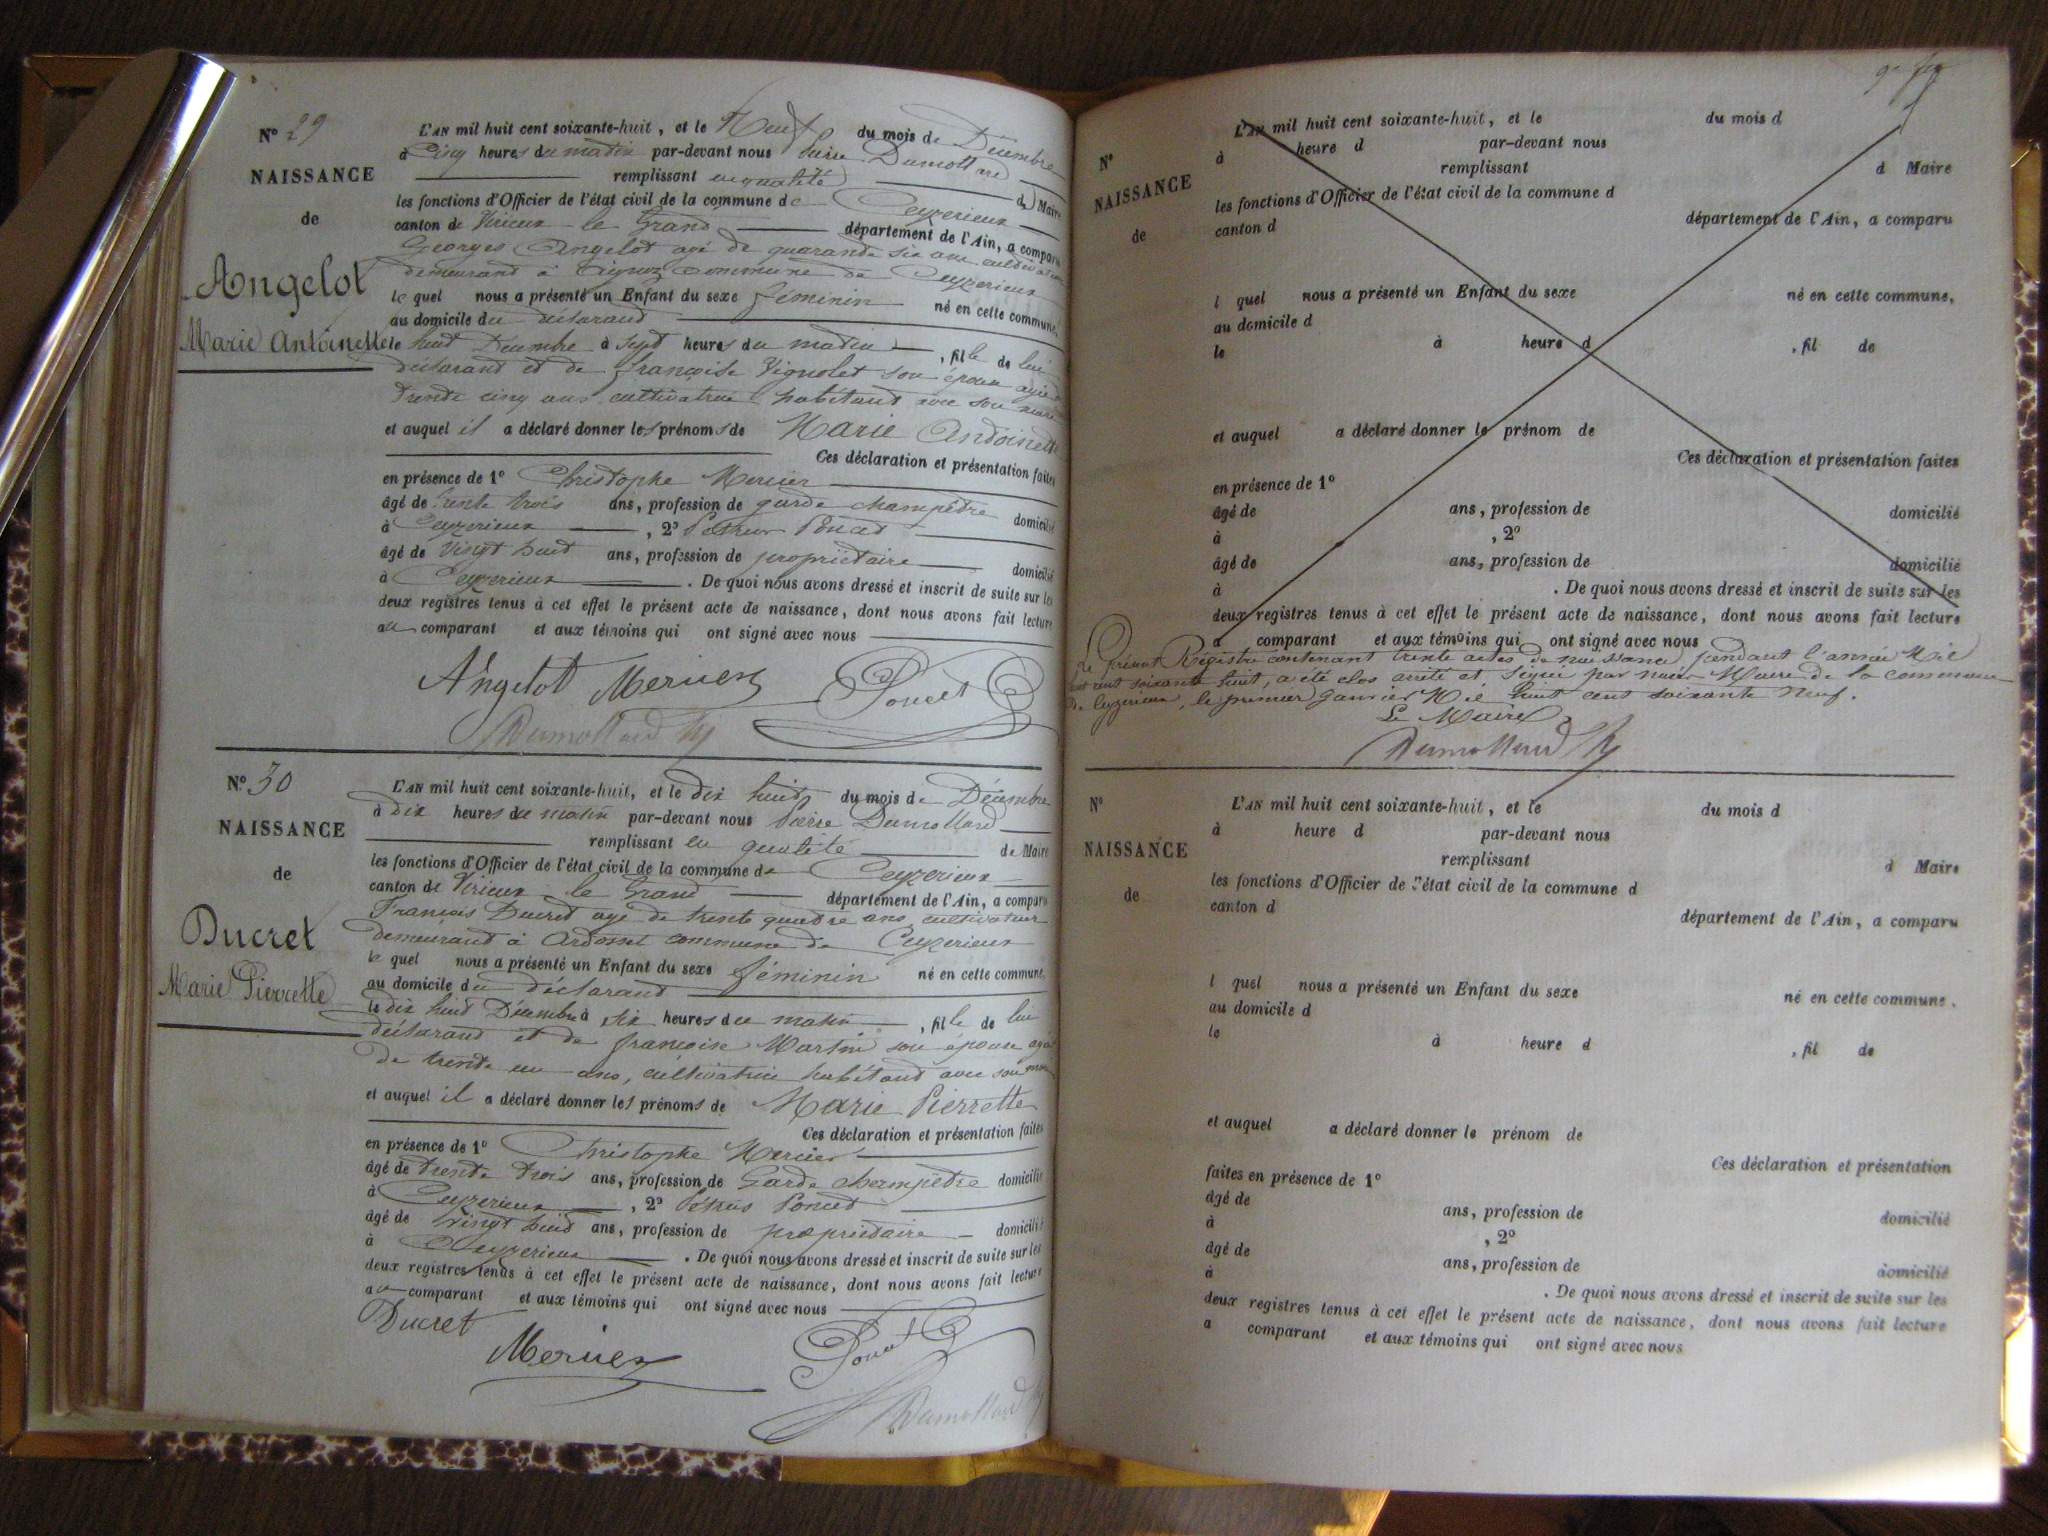 N° 29
NAISSANCE
de
Angelot
Marie Antoinette
L'AN mil huit cent soixante-huit, et le Neuf du mois de Décembre
à Cinq heures du matin par-devant nous Pierre Dumollard
remplissant en qualité de Maire
les fonctions d'Officier de l'état civil de la commune de Ceyzerieux
canton de Virieux le Grand département de l'Ain, a comparu
Georges Angelot agé de quarante six ans cultivateur
demeurant à commune de Ceyzerieux
le quel nous a présenté un Enfant du sexe féminin né en cette commune,
au domicile du déclarant
le huit Décembre à sept heures du matin, fille de lui
déclarant et de françoise Vignolet son épouse agée
trente cinq ans cultivatrice habitant avec son mari
et auquel il a déclaré donner les prénoms de Marie Antoinette
Ces déclaration et présentation faites
en présence de 1° Christophe Mercier
âgé de trente trois ans, profession de garde champêtre domicilié
à Ceyzerieux, 2° Petrus Poncet
âgé de vingt huit ans, profession de propriétaire domicilié
à Ceyzerieux. De quoi nous avons dressé et inscrit de suite sur les
deux registres tenus à cet effet le présent acte de naissance, dont nous avons fait lecture
au comparant et aux témoins qui ont signé avec nous
Angelot Mercier Poncet
Dumollard
N° 30
NAISSANCE
de
Ducret
Marie Pierrette
L'AN mil huit cent soixante-huit, et le dix huit du mois de Décembre
à dix heures du matin par-devant nous Pierre Dumollard
remplissant en qualité de Maire
les fonctions d'Officier de l'état civil de la commune de Ceyzerieux
canton de Virieux le Grand département de l'Ain, a comparu
François Ducret agé de trente quatre ans cultivateur
demeurant à Ardosset commune de Ceyzerieux
le quel nous a présenté un Enfant du sexe féminin né en cette commune,
au domicile du déclarant
le dix huit Décembre à six heures du matin, fille de lui
déclarant et de françoise Martin son épouse agée
de trente un ans, cultivatrice habitant avec son mari
et auquel il a déclaré donner les prénoms de Marie Pierrette
Ces déclaration et présentation faites
en présence de 1° Christophe Mercier
âgé de trente trois ans, profession de Garde champêtre domicilié
à Ceyzerieux, 2° Pétrus Poncet
âgé de vingt huit ans, profession de propriétaire domicilié
à Ceyzerieux. De quoi nous avons dressé et inscrit de suite sur les
deux registres tenus à cet effet le présent acte de naissance, dont nous avons fait lecture
au comparant et aux témoins qui ont signé avec nous
Ducret
Mercier Poncet
Dumollard
N°
NAISSANCE
de
L'AN mil huit cent soixante-huit, et le du mois d
à heure d par-devant nous
remplissant d Maire
les fonctions d'Officier de l'état civil de la commune d
canton d département de l'Ain, a comparu
l quel nous a présenté un Enfant du sexe né en cette commune,
au domicile d
le à heure d , fil de
et auquel a déclaré donner le prénom de
Ces déclaration et présentation faites
en présence de 1°
âgé de ans, profession de domicilié
à , 2°
âgé de ans, profession de domicilié
à . De quoi nous avons dressé et inscrit de suite sur les
deux registres tenus à cet effet le présent acte de naissance, dont nous avons fait lecture
a comparant et aux témoins qui ont signé avec nous
Le présent Régistre contenant trente actes de naissance, pendant l'année Mil
huit cent soixante huit, a été clos arrêté et signé par nous Maire de la commune
de Ceyzerieux, le premier Janvier Mil huit cent soixante neuf.
Le Maire
Dumollard
N°
NAISSANCE
de
L'AN mil huit cent soixante-huit, et le du mois d
à heure d par-devant nous
remplissant d Maire
les fonctions d'Officier de l'état civil de la commune d
canton d département de l'Ain, a comparu
l quel nous a présenté un Enfant du sexe né en cette commune,
au domicile d
le à heure d , fil de
et auquel a déclaré donner le prénom de
Ces déclaration et présentation
faites en présence de 1°
âgé de ans, profession de domicilié
à , 2°
âgé de ans, profession de domicilié
à . De quoi nous avons dressé et inscrit de suite sur les
deux registres tenus à cet effet le présent acte de naissance, dont nous avons fait lecture
a comparant et aux témoins qui ont signé avec nous